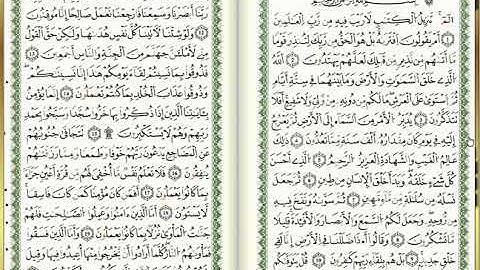 الٓمٓ ١ تَنزِيلُ ٱلْكِتَٰبِ لَا رَيْبَ فِيهِ مِن رَّبِّ ٱلْعَٰلَمِينَ
٢ أَمْ يَقُولُونَ ٱفْتَرَىٰهُ بَلْ هُوَ ٱلْحَقُّ مِن رَّبِّكَ لِتُنذِرَ قَوْمًا
مَّآ أَتَىٰهُم مِّن نَّذِيرٍ مِّن قَبْلِكَ لَعَلَّهُمْ يَهْتَدُونَ ٣ ٱللَّهُ
ٱلَّذِى خَلَقَ ٱلسَّمَٰوَٰتِ وَٱلْأَرْضَ وَمَا بَيْنَهُمَا فِى سِتَّةِ أَيَّامٍ
ثُمَّ ٱسْتَوَىٰ عَلَى ٱلْعَرْشِ مَا لَكُم مِّن دُونِهِۦ مِن وَلِىٍّ وَلَا شَفِيعٍ أَفَلَا
تَتَذَكَّرُونَ ٤ يُدَبِّرُ ٱلْأَمْرَ مِنَ ٱلسَّمَآءِ إِلَى ٱلْأَرْضِ ثُمَّ يَعْرُجُ
إِلَيْهِ فِى يَوْمٍ كَانَ مِقْدَارُهُۥٓ أَلْفَ سَنَةٍ مِّمَّا تَعُدُّونَ ٥ ذَٰلِكَ
عَٰلِمُ ٱلْغَيْبِ وَٱلشَّهَٰدَةِ ٱلْعَزِيزُ ٱلرَّحِيمُ ٦ ٱلَّذِىٓ أَحْسَنَ
كُلَّ شَىْءٍ خَلَقَهُۥ وَبَدَأَ خَلْقَ ٱلْإِنسَٰنِ مِن طِينٍ ٧ ثُمَّ جَعَلَ
نَسْلَهُۥ مِن سُلَٰلَةٍ مِّن مَّآءٍ مَّهِينٍ ٨ ثُمَّ سَوَّىٰهُ وَنَفَخَ فِيهِ
مِن رُّوحِهِۦ وَجَعَلَ لَكُمُ ٱلسَّمْعَ وَٱلْأَبْصَٰرَ وَٱلْأَفْـِٔدَةَ قَلِيلًا
مَّا تَشْكُرُونَ ٩ وَقَالُوٓا۟ أَءِذَا ضَلَلْنَا فِى ٱلْأَرْضِ أَءِنَّا لَفِى
خَلْقٍ جَدِيدٍۭ بَلْ هُم بِلِقَآءِ رَبِّهِمْ كَٰفِرُونَ ١٠ قُلْ يَتَوَفَّىٰكُم
رَبَّنَآ أَبْصَرْنَا وَسَمِعْنَا فَٱرْجِعْنَا نَعْمَلْ صَٰلِحًا إِنَّا مُوقِنُونَ
١٢ وَلَوْ شِئْنَا لَءَاتَيْنَا كُلَّ نَفْسٍ هُدَىٰهَا وَلَٰكِنْ حَقَّ ٱلْقَوْلُ
مِنِّى لَأَمْلَأَنَّ جَهَنَّمَ مِنَ ٱلْجِنَّةِ وَٱلنَّاسِ أَجْمَعِينَ ١٣
فَذُوقُوا۟ بِمَا نَسِيتُمْ لِقَآءَ يَوْمِكُمْ هَٰذَآ إِنَّا نَسِينَٰكُمْ
وَذُوقُوا۟ عَذَابَ ٱلْخُلْدِ بِمَا كُنتُمْ تَعْمَلُونَ ١٤ إِنَّمَا يُؤْمِنُ
بِـَٔايَٰتِنَا ٱلَّذِينَ إِذَا ذُكِّرُوا۟ بِهَا خَرُّوا۟ سُجَّدًا وَسَبَّحُوا۟ بِحَمْدِ
رَبِّهِمْ وَهُمْ لَا يَسْتَكْبِرُونَ ١٥ تَتَجَافَىٰ جُنُوبُهُمْ
عَنِ ٱلْمَضَاجِعِ يَدْعُونَ رَبَّهُمْ خَوْفًا وَطَمَعًا وَمِمَّا رَزَقْنَٰهُمْ
يُنفِقُونَ ١٦ فَلَا تَعْلَمُ نَفْسٌ مَّآ أُخْفِىَ لَهُم مِّن قُرَّةِ أَعْيُنٍ جَزَآءًۢ
بِمَا كَانُوا۟ يَعْمَلُونَ ١٧ أَفَمَن كَانَ مُؤْمِنًا كَمَن كَانَ فَاسِقًا
لَّا يَسْتَوُۥنَ ١٨ أَمَّا ٱلَّذِينَ ءَامَنُوا۟ وَعَمِلُوا۟ ٱلصَّٰلِحَٰتِ فَلَهُمْ
جَنَّٰتُ ٱلْمَأْوَىٰ نُزُلًۢا بِمَا كَانُوا۟ يَعْمَلُونَ ١٩ وَأَمَّا ٱلَّذِينَ فَسَقُوا۟
فَمَأْوَىٰهُمُ ٱلنَّارُ كُلَّمَآ أَرَادُوٓا۟ أَن يَخْرُجُوا۟ مِنْهَآ أُعِيدُوا۟ فِيهَا وَقِيلَ